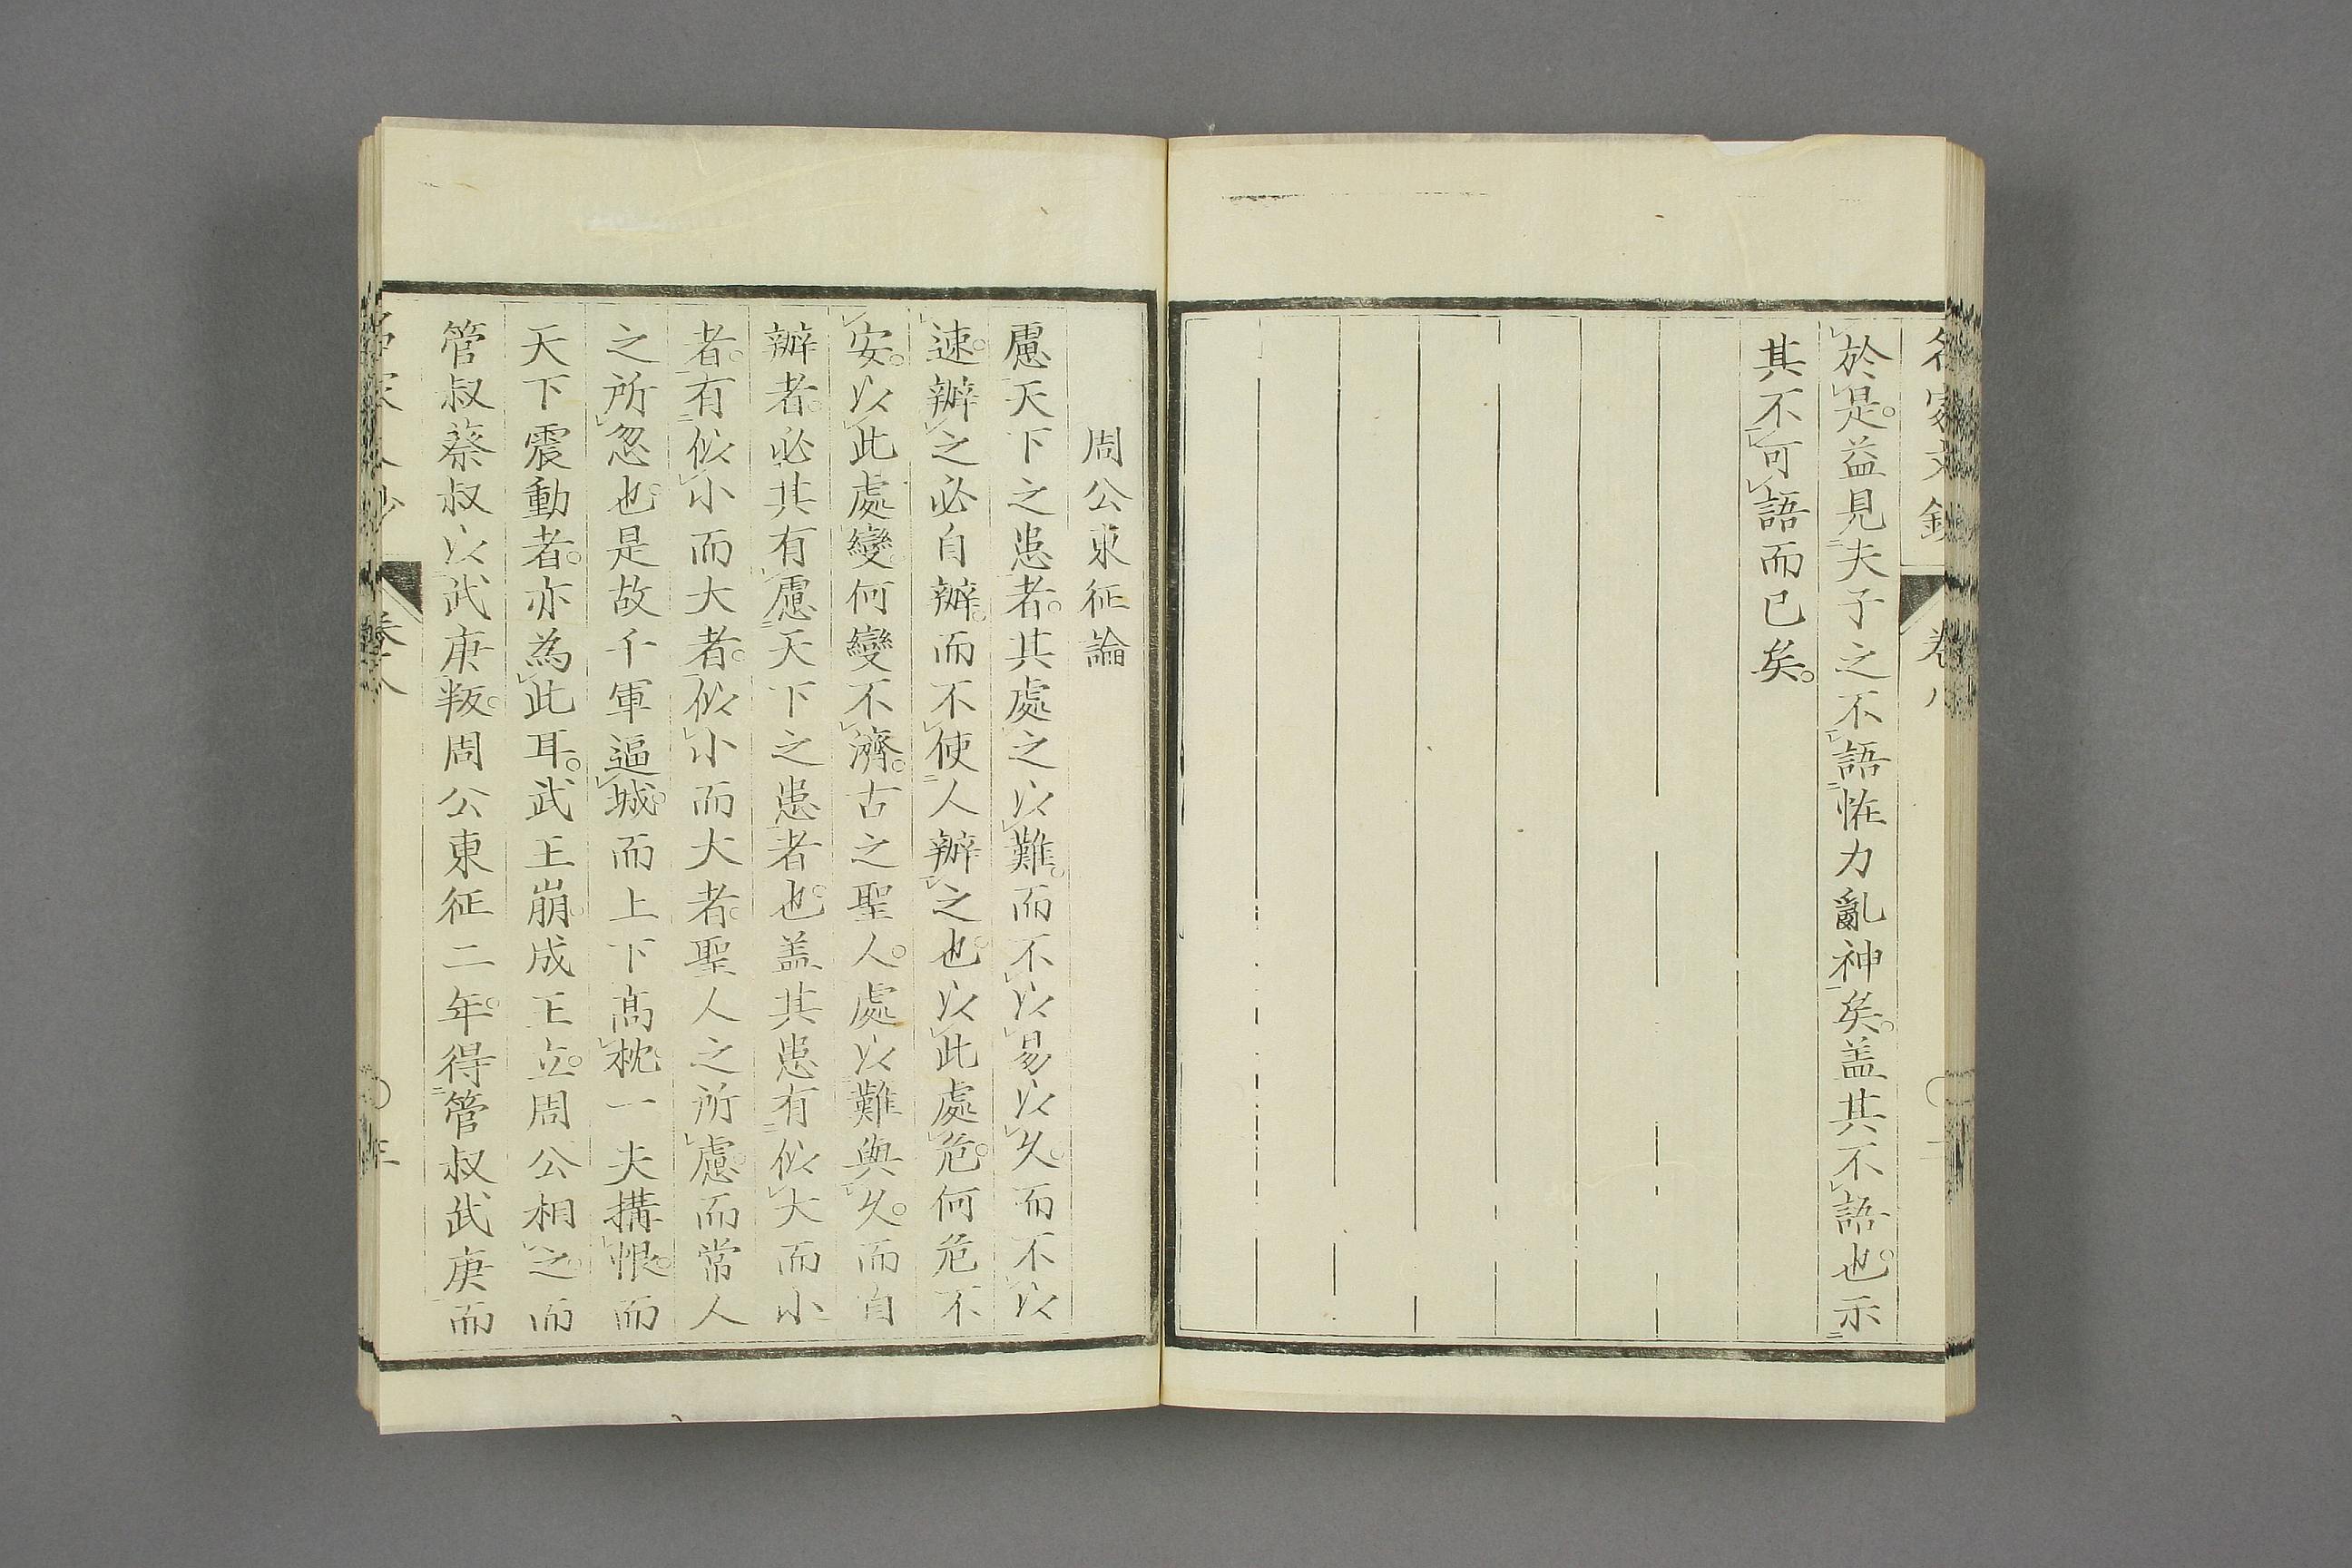 名家文鈔 卷八
於是。益見夫子之不語怪力亂神矣。盖其不語也。示
其不可語而已矣。
周公東征論
慮天下之患者。其處之以難。而不以易以久。而不以
速。辦之必自辦。而不使人辦之也。以此處危。何危不
安。以此處變。何變不濟。古之聖人。處以難與久。而自
辦者。必其有慮天下之患者也。盖其患有似大而小
者。有似小而大者。似小而大者。聖人之所慮。而常人
之所忽也。是故千軍逼城。而上下高枕。一夫搆恨。而
天下震動者。亦為此耳。武王崩。成王立。周公相之。而
管叔蔡叔以武庚叛。周公東征二年。得管叔武庚而